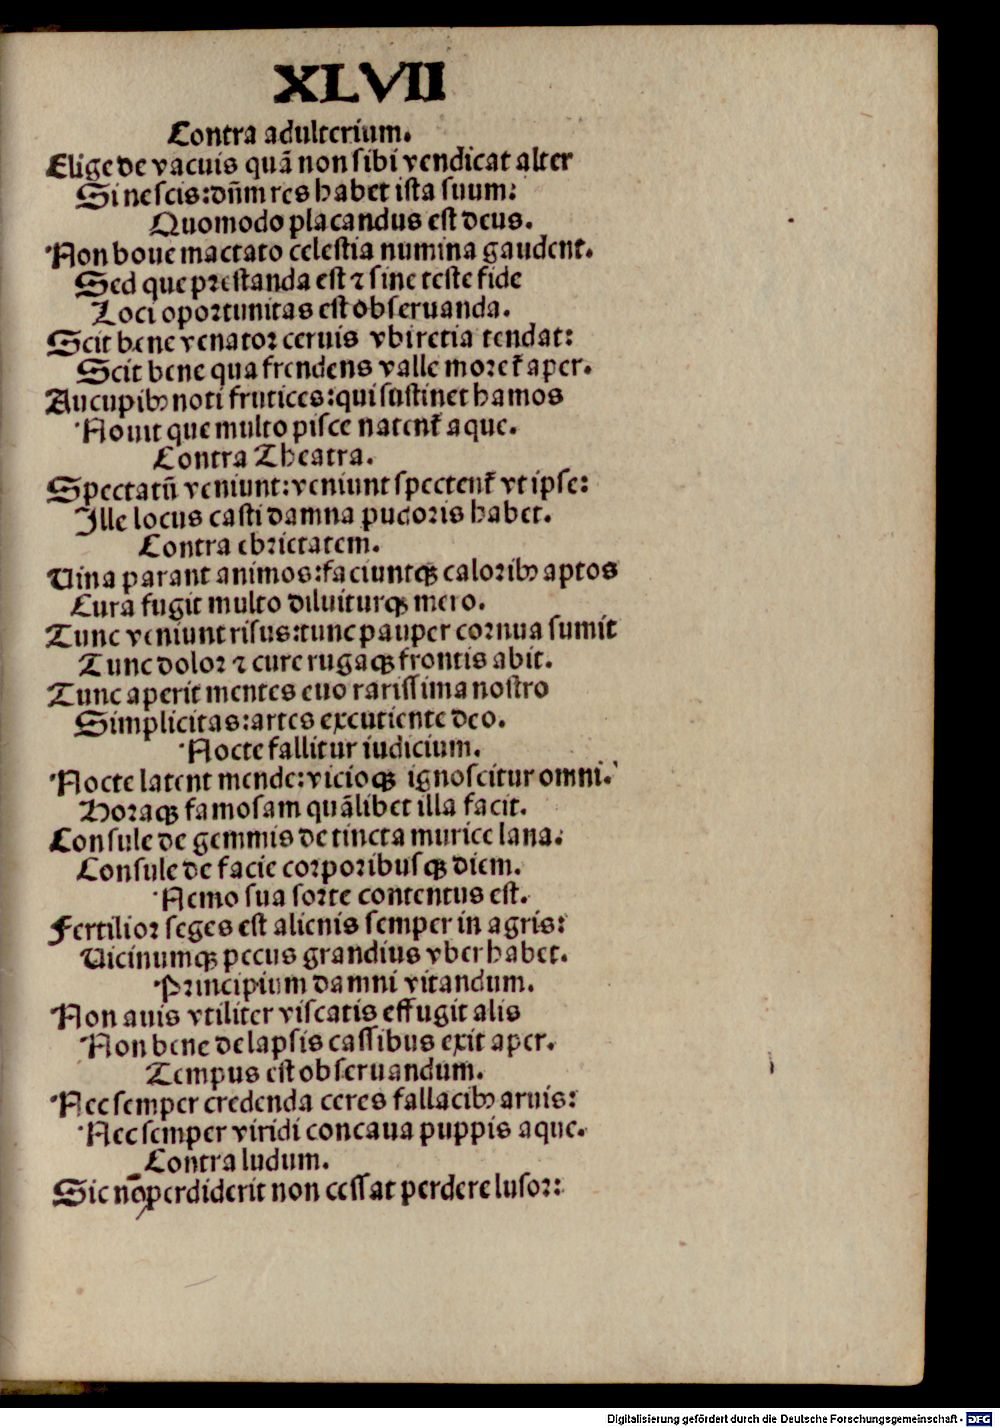 XLVII
Contra adulterium.
Elige de vacuis quā non sibi vendicat alter
Si nescis: dn̄m res habet ista suum:
Quomodo placandus est deus.
Non boue mactato celestia numina gaudent.
Sed que prestanda est ⁊ sine teste fide
Loci oportunitas est obseruanda.
Scit bene venator ceruis vbi retia tendat:
Scit bene qua frendens valle moret᷑ aper.
Aucupibꝫ noti frutices: qui sustinet hamos
Nouit que multo pisce natent᷑ aque.
Contra Theatra.
Spectatū veniunt: veniunt spectent᷑ vt ipse:
Ille locus casti damna pudoris habet.
Contra ebrietatem.
Uina parant animos: faciuntqꝫ caloribꝫ aptos
Cura fugit multo diluiturqꝫ mero.
Tunc veniunt risus: tunc pauper cornua sumit
Tunc dolor ⁊ cure rugaqꝫ frontis abit.
Tunc aperit mentes euo rarissima nostro
Simplicitas: artes excutiente deo.
Nocte fallitur iudicium.
Nocte latent mende: vicioqꝫ ignoscitur omni.
Horaqꝫ famosam quālibet illa facit.
Consule de gemmis de tincta murice lana:
Consule de facie corporibusqꝫ diem.
Nemo sua sorte contentus est.
Fertilior seges est alienis semper in agris:
Uicinumqꝫ pecus grandius vber habet.
Principium damni vitandum.
Non auis vtiliter viscatis effugit alis
Non bene de lapsis cassibus exit aper.
Tempus est obseruandum.
Nec semper credenda ceres fallacibꝫ aruis:
Nec semper viridi concaua puppis aque.
Contra ludum.
Sic nō perdiderit non cessat perdere lusor:
Digitalisierung gefördert durch die Deutsche Forschungsgemeinschaft - DFG